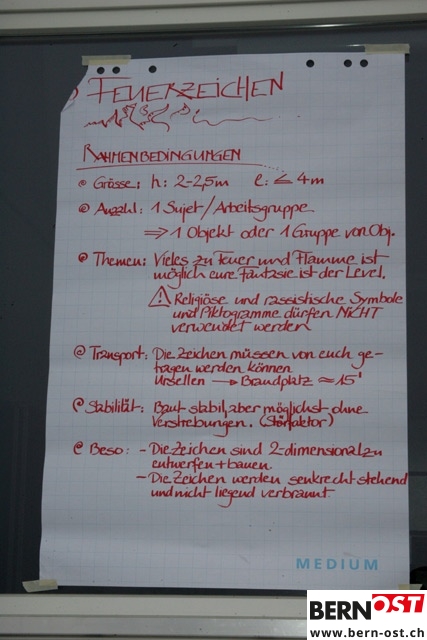 FEUERZEICHEN
RAHMENBEDINGUNGEN
Grösse: h: 2-2,5m l: ≤ 4m
Anzahl: 1 Sujet/Arbeitsgruppe
⇒ 1 Objekt oder 1 Gruppe von Obj.
Themen: Vieles zu Feuer und Flamme ist
möglich eure Fantasie ist der Level.
⚠ Religiöse und rassistische Symbole
und Piktogramme dürfen NICHT
verwendet werden
Transport: Die Zeichen müssen von euch ge-
tragen werden können
Ursellen → Brandplatz ≈ 15'
Stabilität: Baut stabil, aber möglichst ohne
Verstrebungen. (Störfaktor)
Beso: - Die Zeichen sind 2-dimensional zu
entwerfen + bauen
- Die Zeichen werden senkrecht stehend
und nicht liegend verbrannt
MEDIUM
BERNOST
www.bern-ost.ch